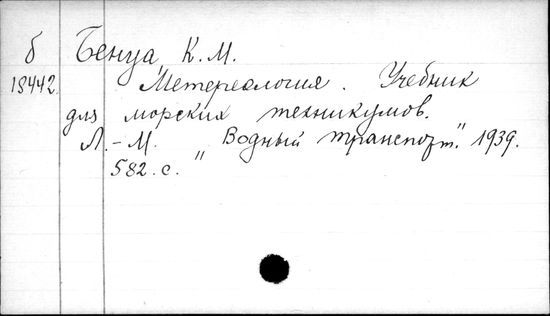 б Бенуа, К. М.
18442. Метереология. Учебник
для морских техникумов.
Л.-М. "Водный транспорт." 1939.
582. с.